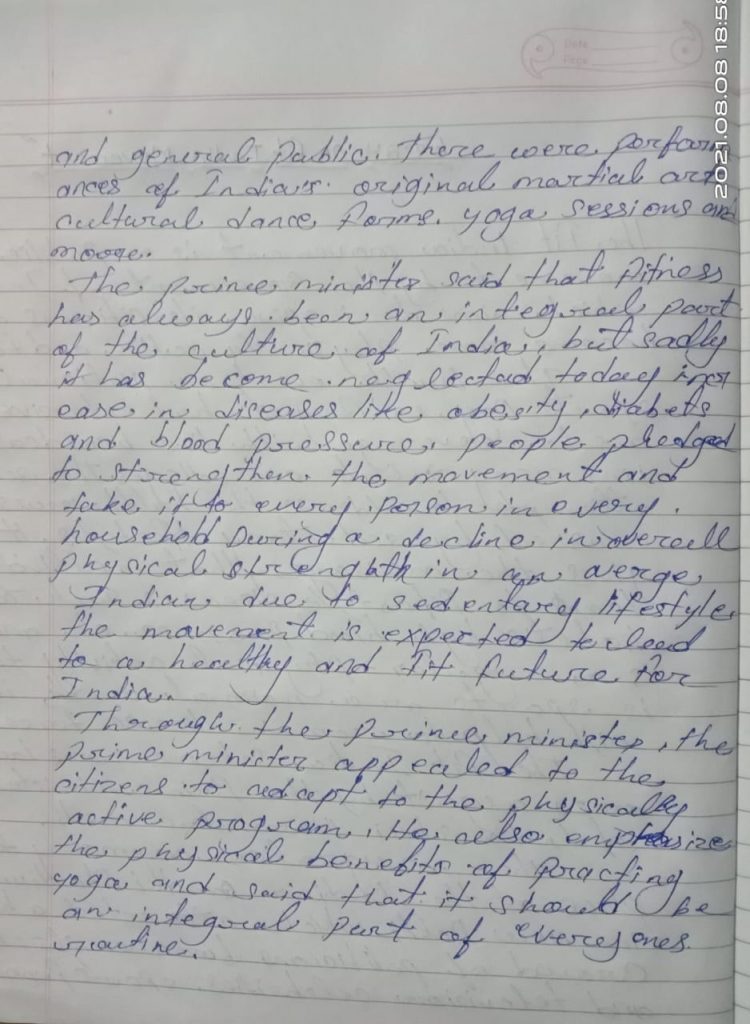 Date
Page
2021.08.08 18:58
and general public. there were perform
ances of India's original martial art
cultural dance forms. yoga sessions and
moore.
The prince minister said that fitness
has always been an integral part
of the culture of India, but sadly
it has become neglected today incr
ease in diseases like obesity, diabets
and blood pressure, people pledged
to strengthen the movement and
take it to every person in every.
household During a decline in overall
physical strength in an averge
Indian due to sedentary lifestyle
the movement is expected to lead
to a healthy and fit future for
India.
Through the prince minister, the
prime minister appealed to the
citizens to adapt to the physically
active program, He also emphasize
the physical benefits of practing
yoga and said that it should be
an integral part of everyones
routine.